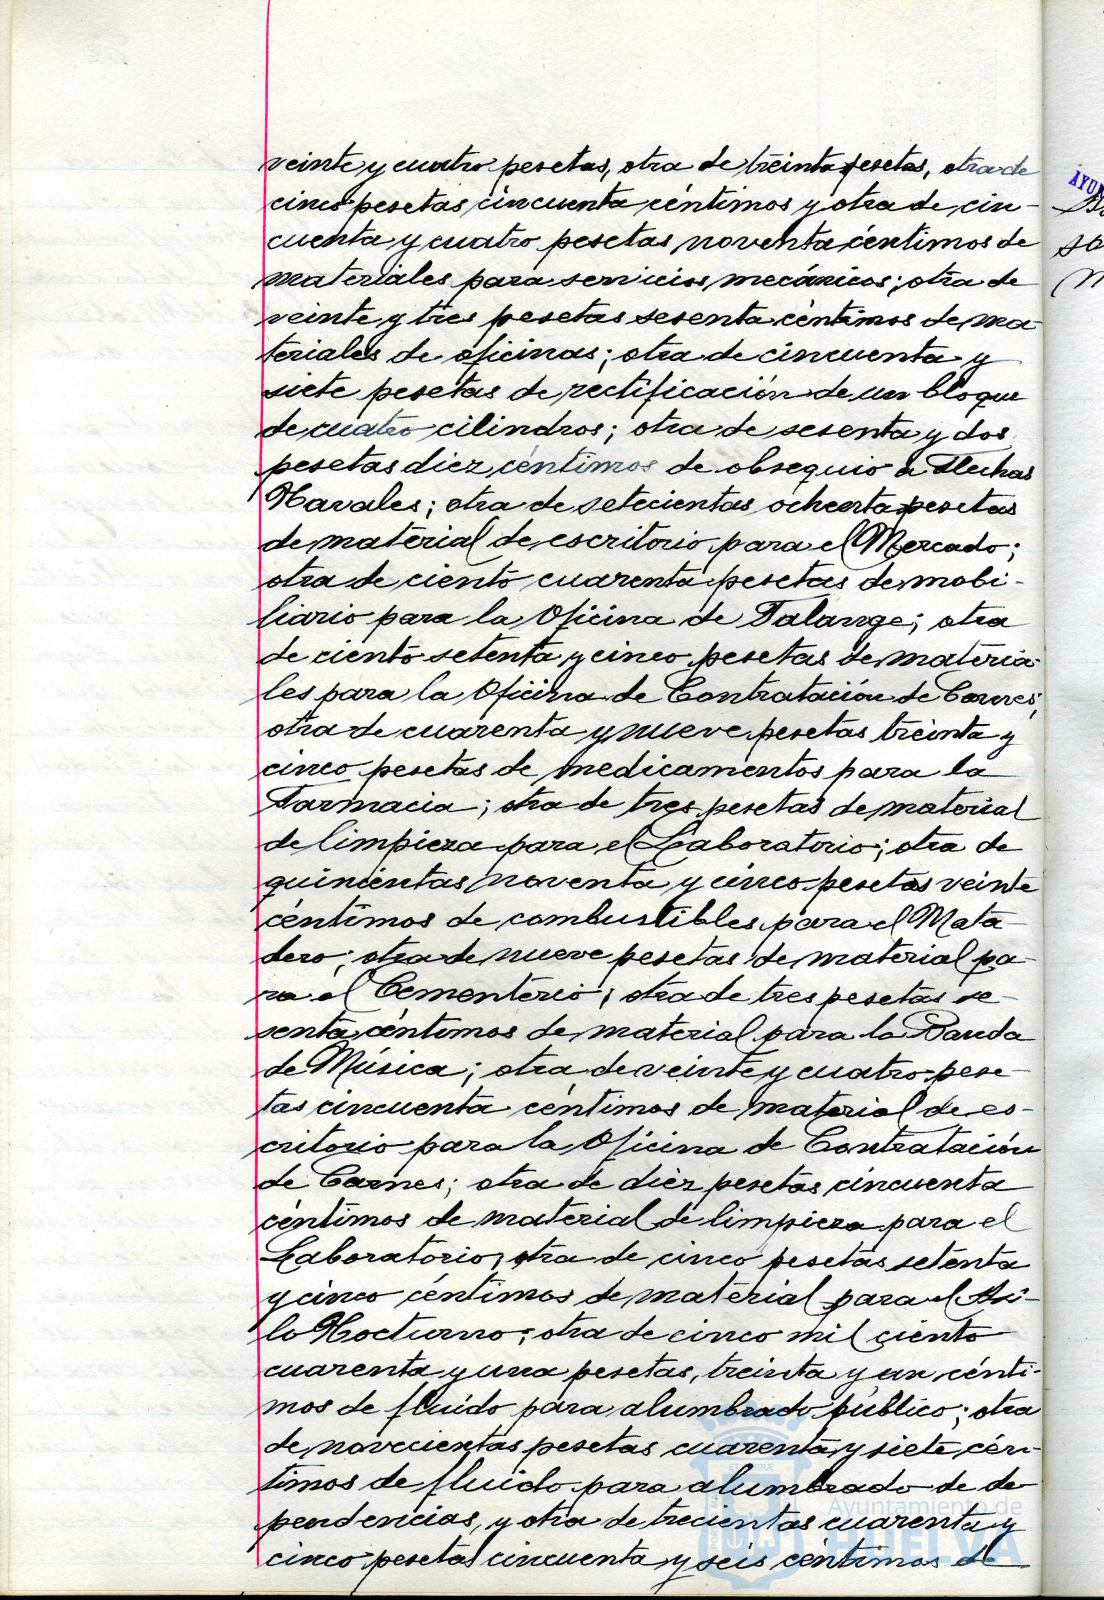 veinte y cuatro pesetas, otra de treinta pesetas, otra de
cinco pesetas cincuenta céntimos y otra de cin-
cuenta y cuatro pesetas noventa céntimos de
materiales para servicios mecánicos; otra de
veinte y tres pesetas sesenta céntimos de ma
teriales de oficinas; otra de cincuenta y
siete pesetas de rectificación de un bloque
de cuatro cilindros; otra de sesenta y dos
pesetas diez céntimos de obsequio a Flechas
Navales; otra de setecientas ochenta pesetas
de material de escritorio para el Mercado;
otra de ciento cuarenta pesetas de mobi-
liario para la Oficina de Falange; otra
de ciento setenta y cinco pesetas de materia-
les para la Oficina de Contratación de Carnes;
otra de cuarenta y nueve pesetas treinta y
cinco pesetas de medicamentos para la
Farmacia; otra de tres pesetas de material
de limpieza para el Laboratorio; otra de
quinientas noventa y cinco pesetas veinte
céntimos de combustibles para el Mata-
dero; otra de nueve pesetas de material pa-
ra el Cementerio; otra de tres pesetas se-
senta céntimos de material para la Banda
de Música; otra de veinte y cuatro pese-
tas cincuenta céntimos de material de es-
critorio para la Oficina de Contratación
de Carnes; otra de diez pesetas cincuenta
céntimos de material de limpieza para el
Laboratorio, otra de cinco pesetas setenta
y cinco céntimos de material para el Asi-
lo Nocturno; otra de cinco mil ciento
cuarenta y una pesetas, treinta y un cénti-
mos de fluido para alumbrado público; otra
de novecientas pesetas cuarenta y siete cén-
timos de fluido para alumbrado de de
pendencias, y otra de trecientas cuarenta y
cinco pesetas cincuenta y seis céntimos de
Ayuntamiento de
HUELVA
AYUN